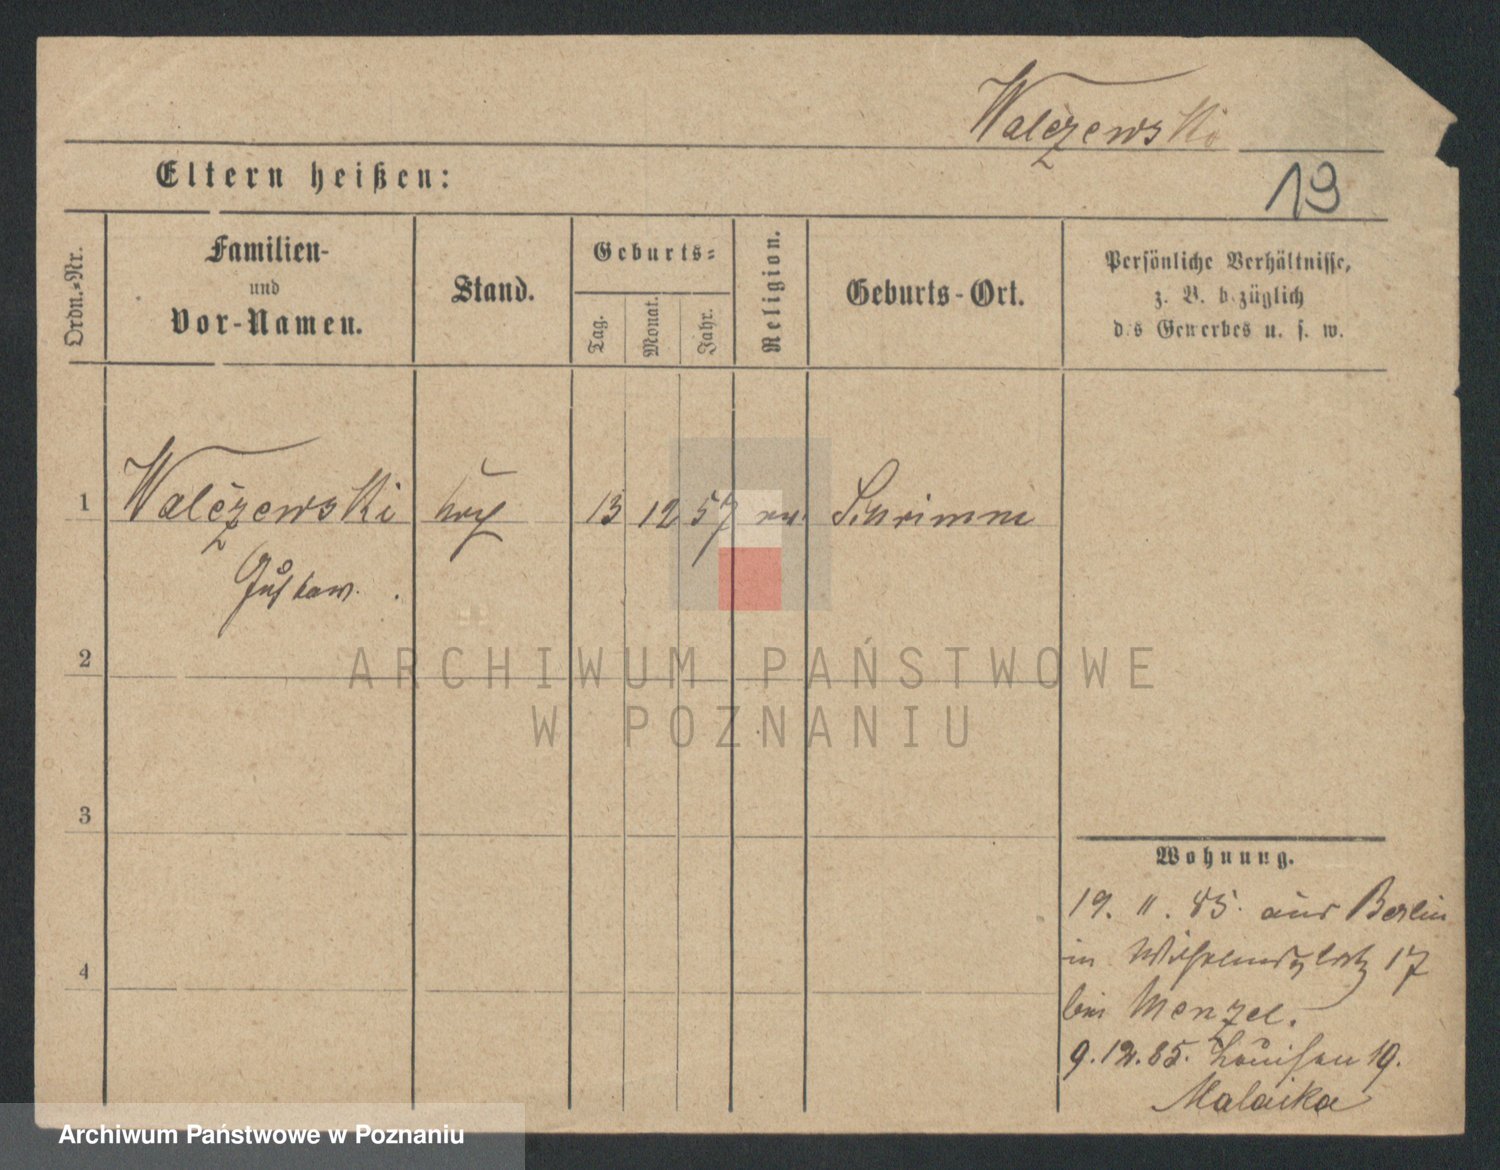 Walczewski
19
Eltern heißen:
Ordn.-Nr.
Familien-
und
Vor-Namen.
Stand.
Geburts-
Tag.
Monat.
Jahr.
Religion.
Geburts-Ort.
Persönliche Verhältnisse,
z. B. bezüglich
des Gewerbes u. s. w.
1 Walczewski 13 12 57 Schrimm
Gustaw.
2
3
4
ARCHIWUM PAŃSTWOWE
W POZNANIU
Wohnung.
19. 11. 85. aus Berlin
in Wilhelmsplatz 17
bei Menzel.
9. 12. 85. Louisen 19.
Malaika
Archiwum Państwowe w Poznaniu